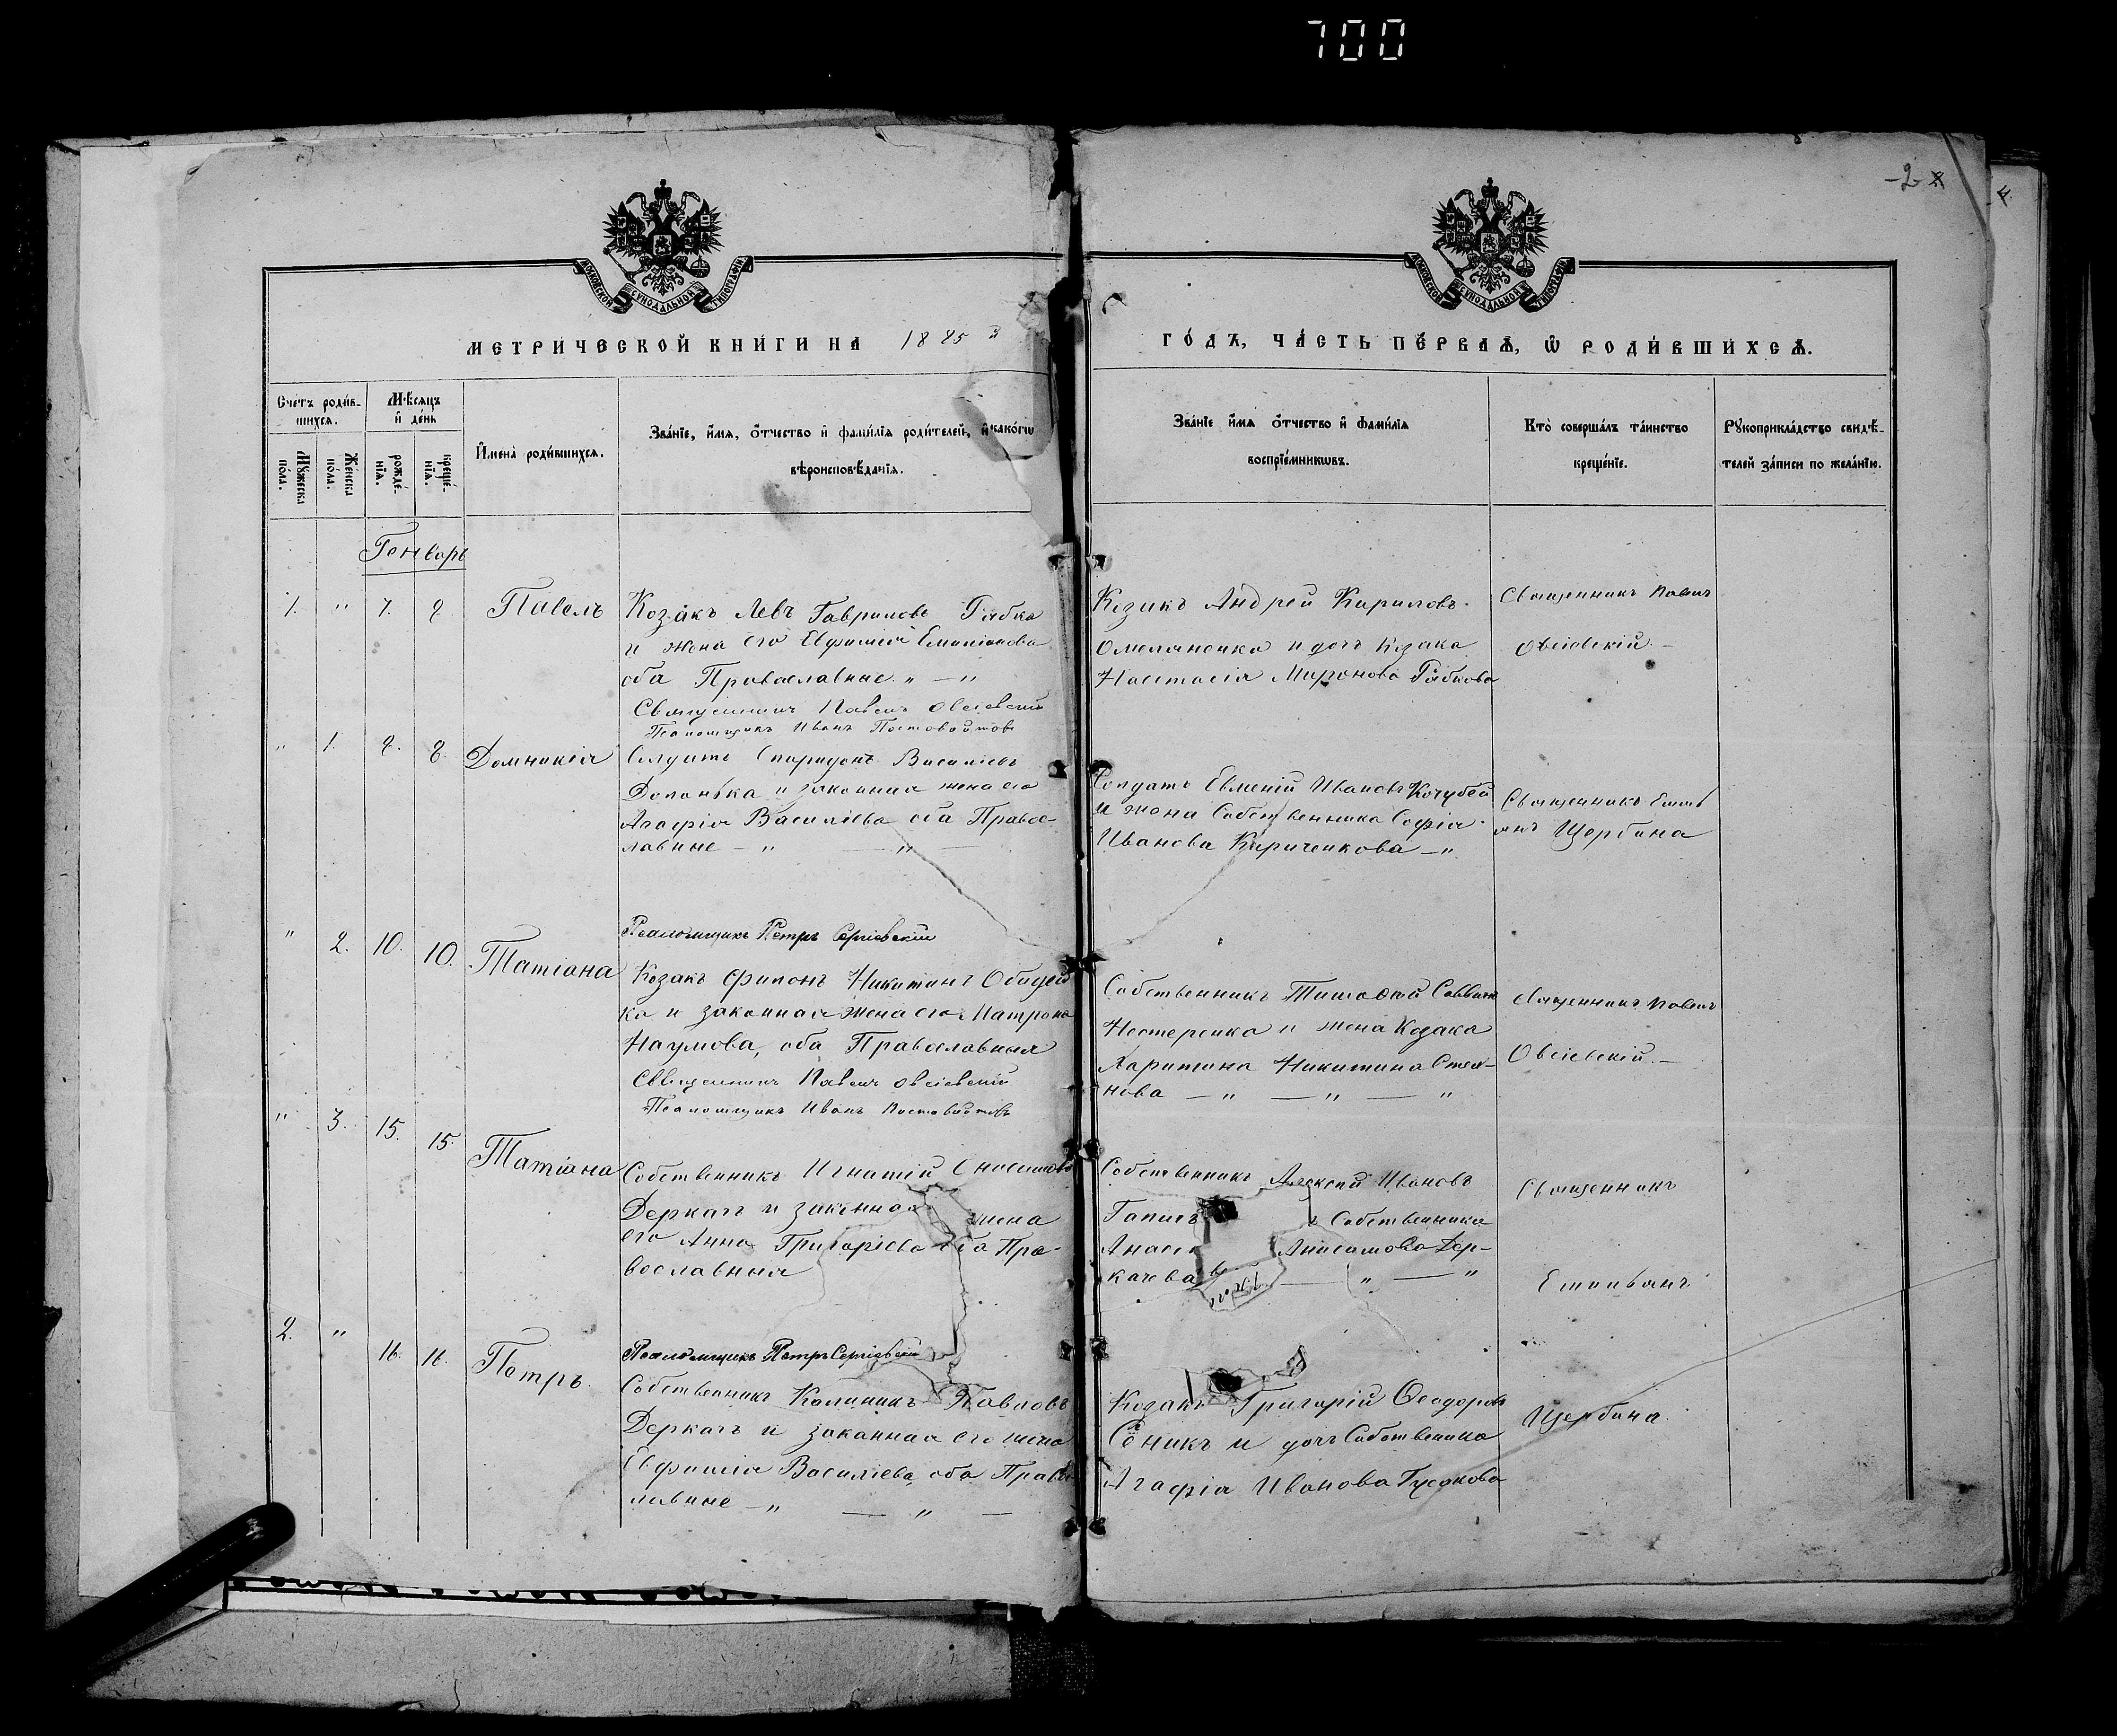 700
-2-
МОСКОВСКОЙ СѴНОДАЛЬНОЙ ТИПОГРАФІИ
МОСКОВСКОЙ СѴНОДАЛЬНОЙ ТИПОГРАФІИ
МЕТРИ́ЧЕСКОЙ КНИ́ГИ НА 1885 й
ГО́ДЪ, ЧА́СТЬ ПЕ́РВАѦ, Ѽ РОДИ́ВШИХСѦ.
Сче́тъ роди́в-
шихсѧ.
Мꙋ́жеска по́ла.
Же́нска по́ла.
Мѣ́сяцъ
и҆ де́нь
рожде́-
нїѧ.
креще́-
нїѧ.
И҆мена̀ роди́вшихсѧ.
Зва́нїе, и҆́мѧ, ѻ҆́тчество и҆ фами́лїѧ роди́телей, и҆ како́гѡ
вѣроисповѣ́данїѧ.
Зва́нїе и҆́мѧ ѻ҆́тчество и҆ фами́лїѧ
воспрїе́мникѡвъ.
Кто̀ соверша́лъ та́инство
креще́нїе.
Рꙋкоприкла́дство свидѣ́-
телей за́писи по жела́нїю.
Генварь
1. " 7. 8. Павелъ
Козакъ Левъ Гавриловъ Рябка
и жена его Евфимія Емиліанова
оба Православные. " — "
Священникъ Павелъ Овсіевскій
Псаломщикъ Иванъ Постовойтовъ
Козакъ Андрей Кириловъ
Омельяненко и дочь Козака
Настасія Миронова Рябкова
Священникъ Павелъ
Овсіевскій. —
" 1. 8. 8. Домникія
Солдатъ Спиридонъ Василіевъ
и законная жена его
Агафія Василіева оба Право-
лавные — " — " —
Псаломщикъ Петръ Сергіевскій
Солдатъ Евменій Ивановъ Кочубей
и жена Собственника Софія
Иванова Кириченкова — "
Священникъ Емиль
янъ Щербина
" 2. 10. 10. Татіана
Козакъ Филонъ Никитинъ Обидей
ко и законная жена его Матрона
Наумова, оба Православныя
Священникъ Павелъ Овсіевскій
Псаломщикъ Иванъ Постовойтовъ
Собственникъ Тимофей Саввинъ
Нестеренко и жена Козака
Харитина Никитина Стея-
нова — " — " — "
Священникъ Павелъ
Овсіевскій. —
" 3. 15. 15. Татіана
Собственникъ Игнатій Онисимовъ
Деркачъ и законная жена
его Анна Григоріева оба Пра-
вославныя
Псаломщикъ Петръ Сергіевскій
Собственникъ Алексѣй Ивановъ
Собственника
Анисимова Дер-
качева — " — "
Священникъ
Емильянъ
2. " 16. 16. Петръ.
Собственникъ Калиникъ Павловъ
Деркачъ и законная его жена
Евфимія Василіева, оба Право
лавные — " — " —
Козакъ Григорій Ѳеодоровъ
Сѣникъ и дочь Собственника
Агафія Иванова Гусакова
Щербина.